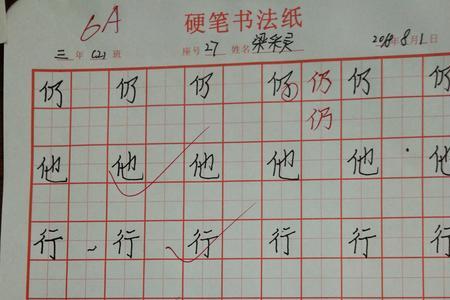 6A
硬笔书法纸
三年(2)班 座号27 姓名 8月1日
仍 仍 仍 仍 仍 仍 仍
仍
他 他 他 他 他 他
行 行 行 行 行 行